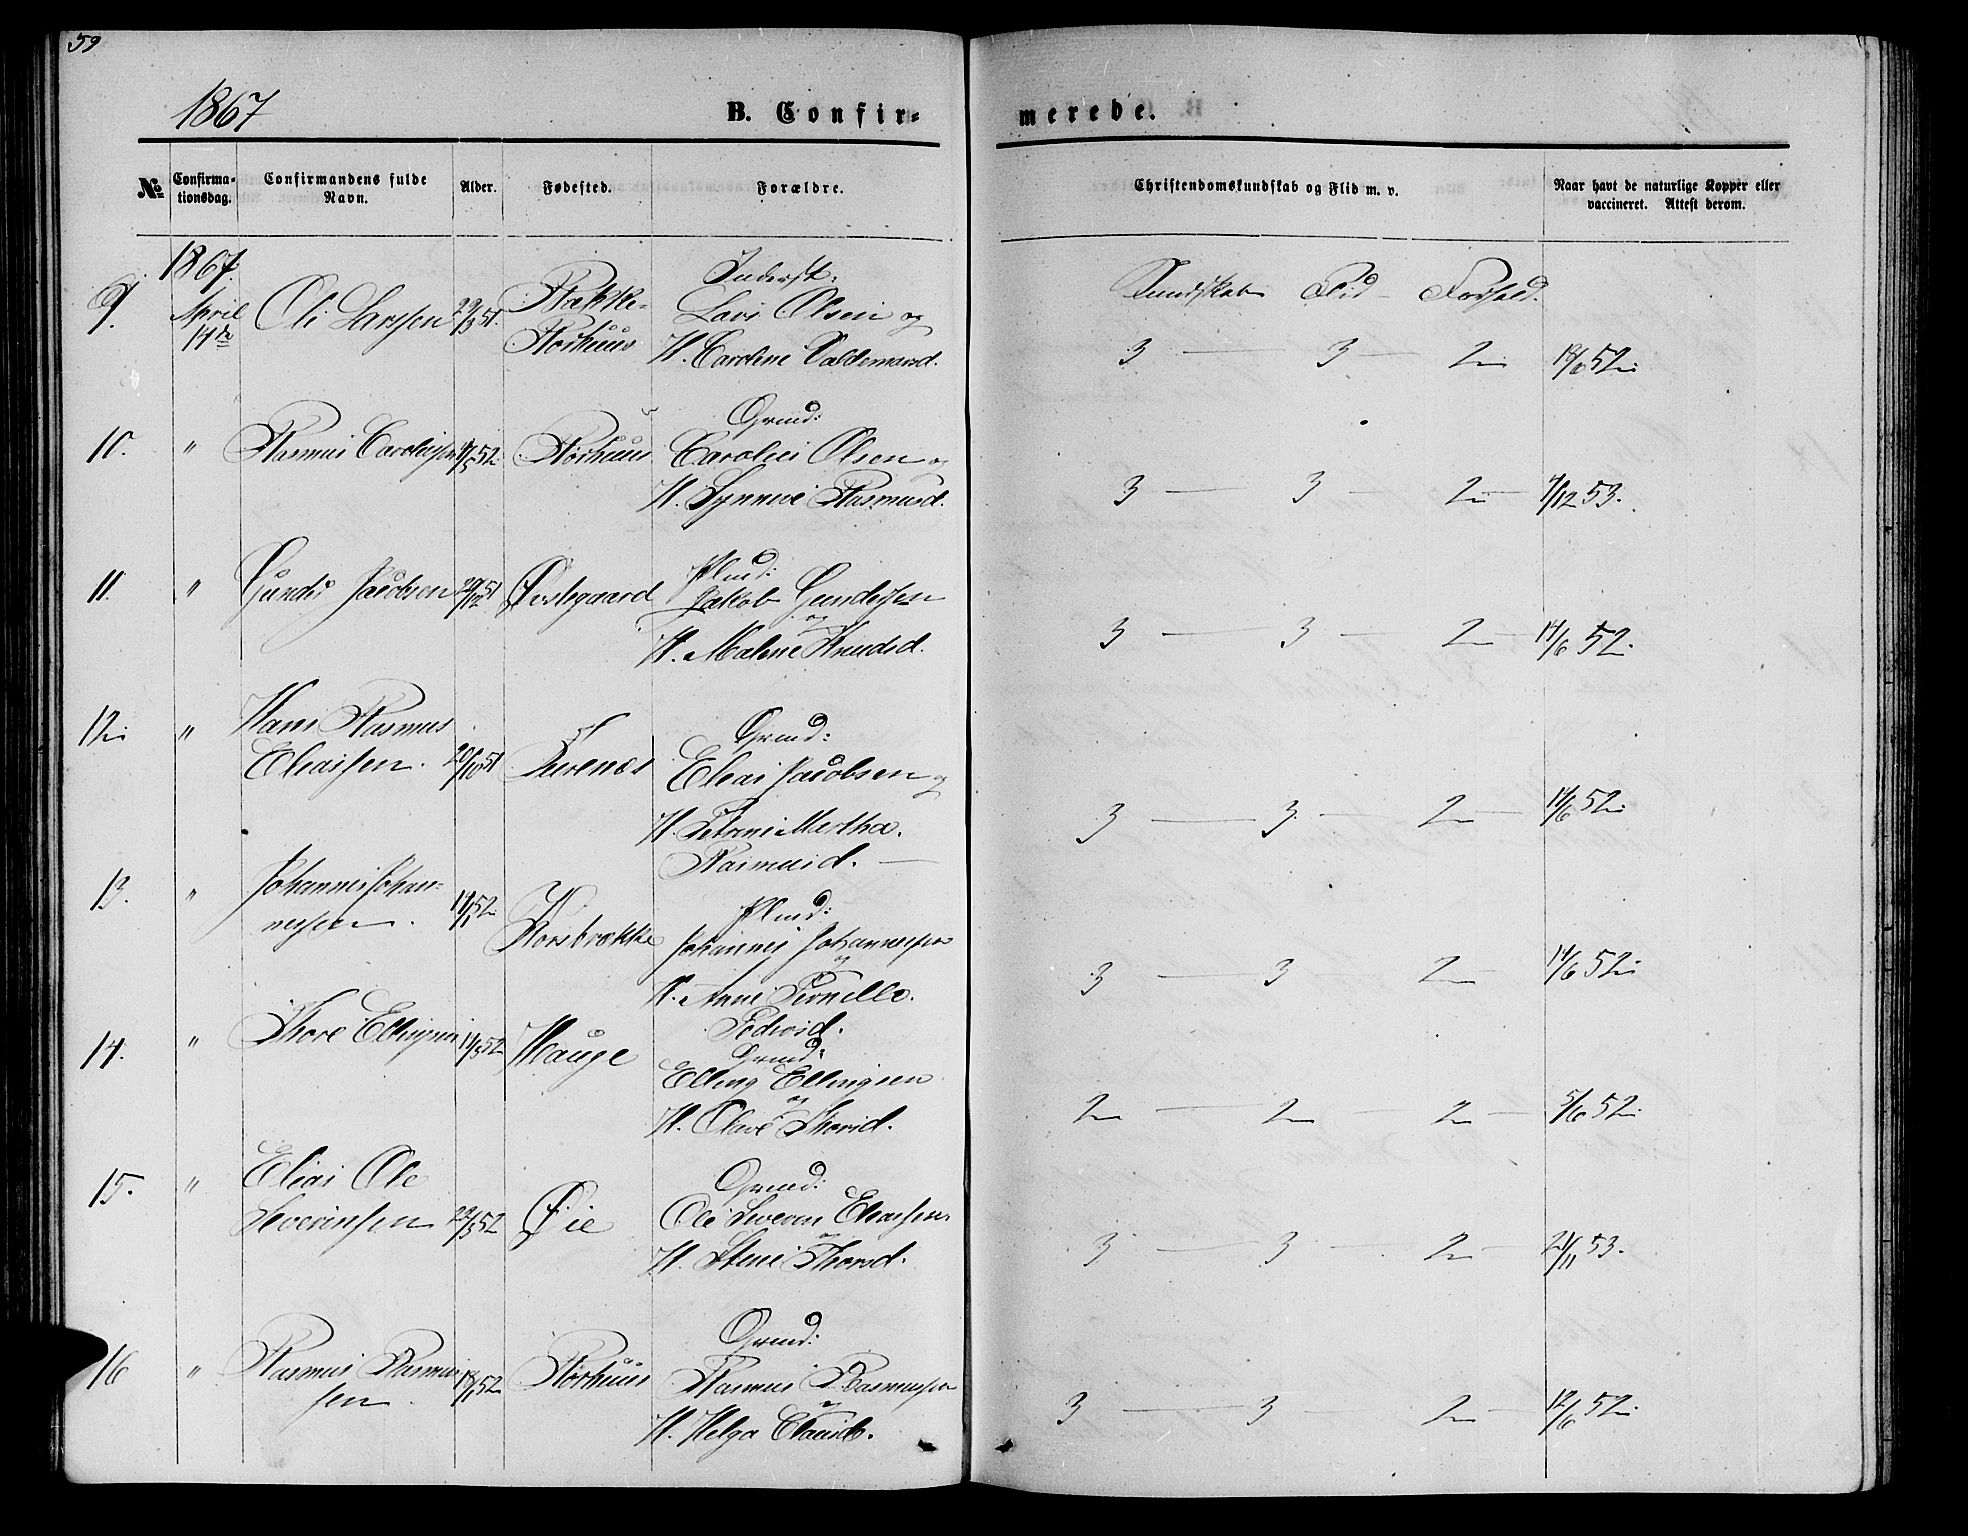 59
1867
B. Confir-
merede.
No
Confirma-
tionsdag.
Confirmandens fulde
Navn.
Alder.
Fødested.
Forældre.
Christendomskundskab og Flid m. v.
Naar havt de naturlige Kopper eller
vaccineret. Attest derom.
1867.
Kundskab Flid Forhold.
9. April 14de Ole Larssen 51. Rørhuus
Inderst:
Lars Olsen og
H. Caroline Valdemarsd.
3 — 3 — 2 52.
10. " Rasmus Carolussen 52. Rørhuus
Grmd:
Carolus Olsen og
H. Synneve Rasmusd.
3 — 3 — 2 — 4/12 53.
11. " Gunder Jacobsen 51 Østegaard
Plmd:
Jakob Gundersen
og
H. Malene Knudsd.
3 — 3 — 2 — 14/6 52.
12. " Hans Rasmus
Eliassen. 20/10 51 Furenæs
Grmd:
Elias Jacobsen og
H. Petrine Martha
Rasmusd. —
3 — 3 — 2 — 14/6 52.
13. " Johannes Johan-
nessen. 52.
Plmd:
Johannes Johannessen
og
H. Anne Pernille
Pedersd.
3 — 3 — 2 — 14/6 52.
14. " Thore Ellingsen 52 Hauge
Grmd:
Elling Ellingsen
og
H. Olave Thorsd.
2 — 2 — 2 — 5/6 52.
15. " Elias Ole
Severinsen 52 Øie
Grmd:
Ole Severin Eliassen
og
H. Stine Thorsd.
3 — 3 — 2 — 21/11 53.
16 " Rasmus Rasmus-
sen. 52 Rørhuus
Grmd:
Rasmus Rasmussen
og
H. Helga Clausd.
3 — 3 — 2 — 12/6 52.